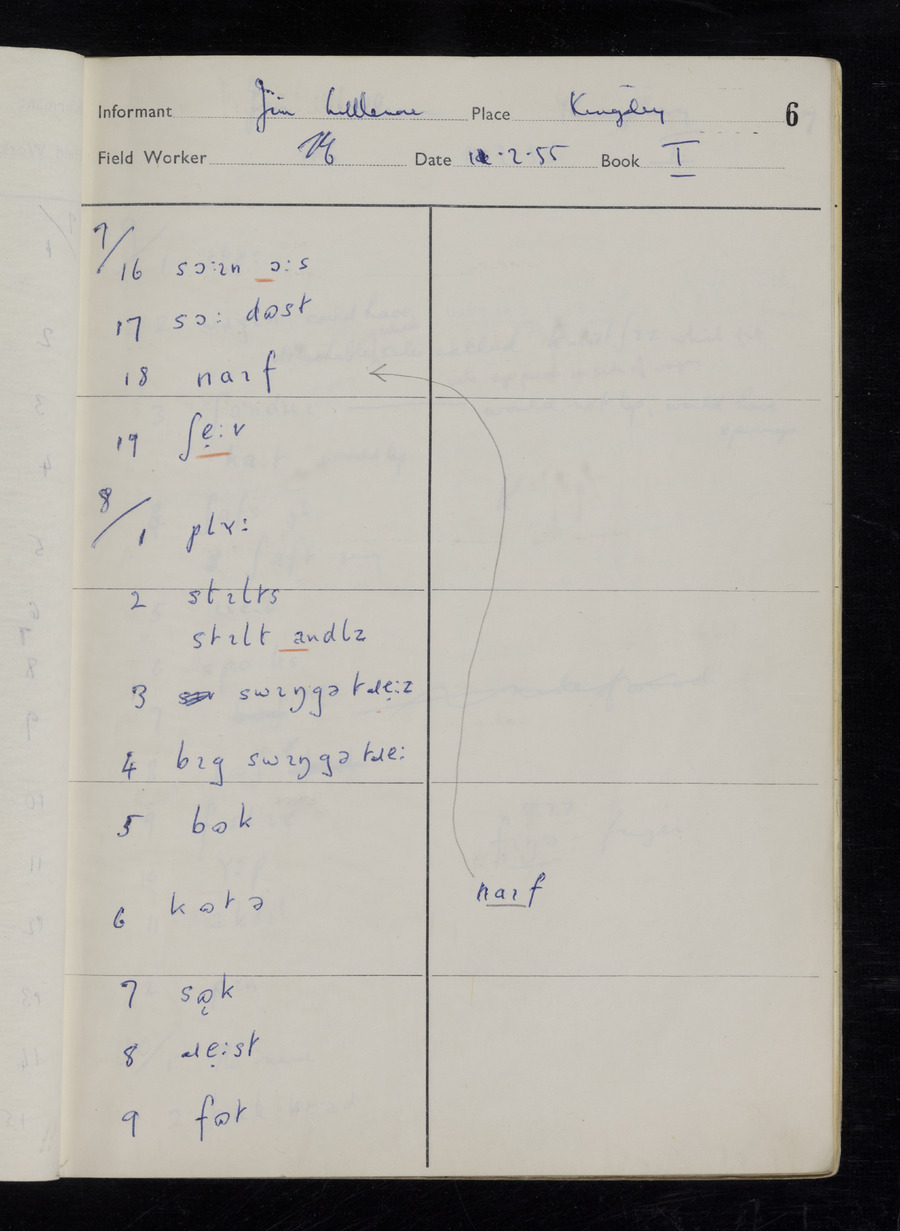 Informant Jim Place Kingsley 6
Field Worker Date 2·55 Book I
7/
16 sɔːɪn ɔːs
17 sɔː dɷst
18 naɪf
19 ʃẹːv
8/
1 plɤː
2 stɪlts
stɪlt andlz
3 swɪŋgə tɹẹːz
4 bɪg swɪŋgə tɹeː
5 bɷk
naɪf
6 kɷtə
7 sɷ̨k
8 ɹẹːst
9 fɷt